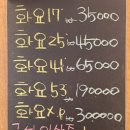 화요17° 35000
화요25° 45000
화요41° 65000
화요53° 190000
화요x.p 300000